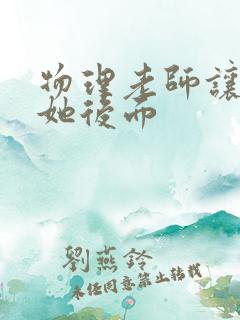 物理老師讓
她後面
劉燕鈴
未经同意禁止转载